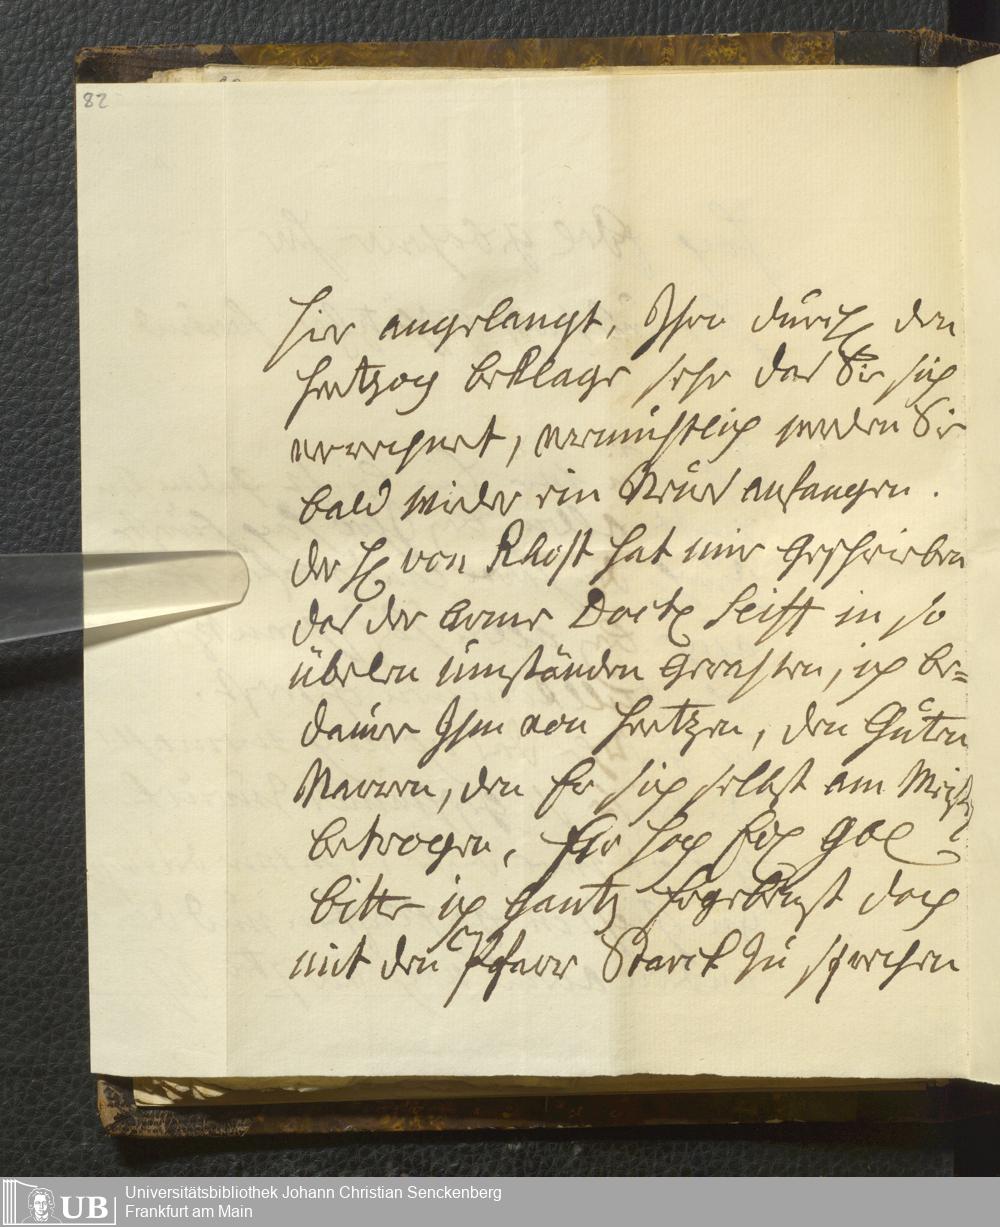 82
hier angelangt, Ihro durch den
Hertzog beklage sehr das Sie sich
verrechnet, vermuhtlich werden Sie
bald wieder ein Neues anfangen.
der H von Rhost hat mir geschrieben
das der arme Doctr Seifft in so
übelen umständen gerathen, ich be=
daure Ihm von Hertzen, den guten
Narren, den Er sich selbst am Meisten
betrogen,
bitte ich gantz Ergebenst doch
mit den Pfarr Starck zu sprechen
UB
Universitätsbibliothek Johann Christian Senckenberg
Frankfurt am Main